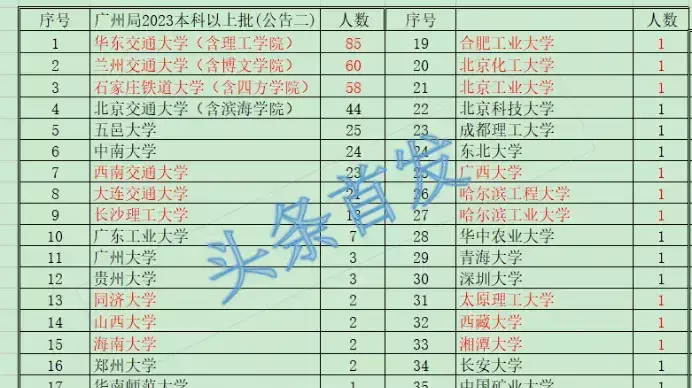 序号 广州局2023本科以上批(公告二) 人数 序号 人数
1 华东交通大学（含理工学院） 85 19 合肥工业大学 1
2 兰州交通大学（含博文学院） 60 20 北京化工大学 1
3 石家庄铁道大学（含四方学院） 58 21 北京工业大学 1
4 北京交通大学（含滨海学院） 44 22 北京科技大学 1
5 五邑大学 25 23 成都理工大学 1
6 中南大学 24 24 东北大学 1
7 西南交通大学 23 25 广西大学 1
8 大连交通大学 21 26 哈尔滨工程大学 1
9 长沙理工大学 13 27 哈尔滨工业大学 1
10 广东工业大学 7 28 华中农业大学 1
11 广州大学 3 29 青海大学 1
12 贵州大学 3 30 深圳大学 1
13 同济大学 2 31 太原理工大学 1
14 山西大学 2 32 西藏大学 1
15 海南大学 2 33 湘潭大学 1
16 郑州大学 2 34 长安大学 1
17 华南师范大学 1 35 中国矿业大学 1
头条首发